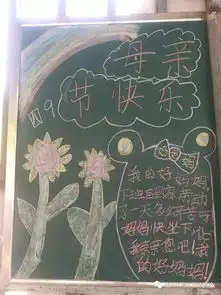 母亲
节快乐
我的好妈妈
下班回到家劳动
了一天多么辛苦呀
妈妈快坐下
我亲亲您吧!我
的好妈妈!